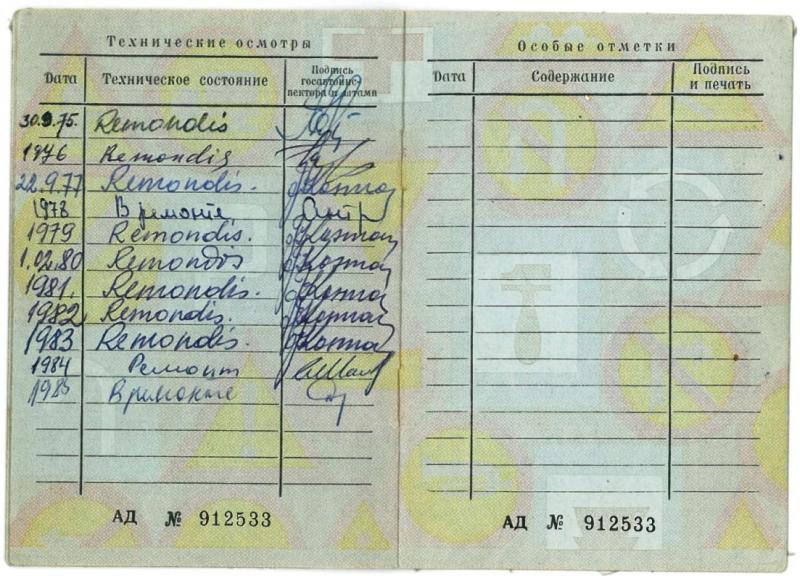 Технические осмотры
Дата Техническое состояние Подпись госавтоинспектора и штамп
30.9.75. Remondis
1976 Remondis
22.9.77 Remondis.
1978 В ремонте
1979 Remondis.
1.02.80 Remondis
1981. Remondis.
1982 Remondis.
1983 Remondis.
1984 Ремонт
1985 В ремонте
АД № 912533
Особые отметки
Дата Содержание Подпись и печать
АД № 912533